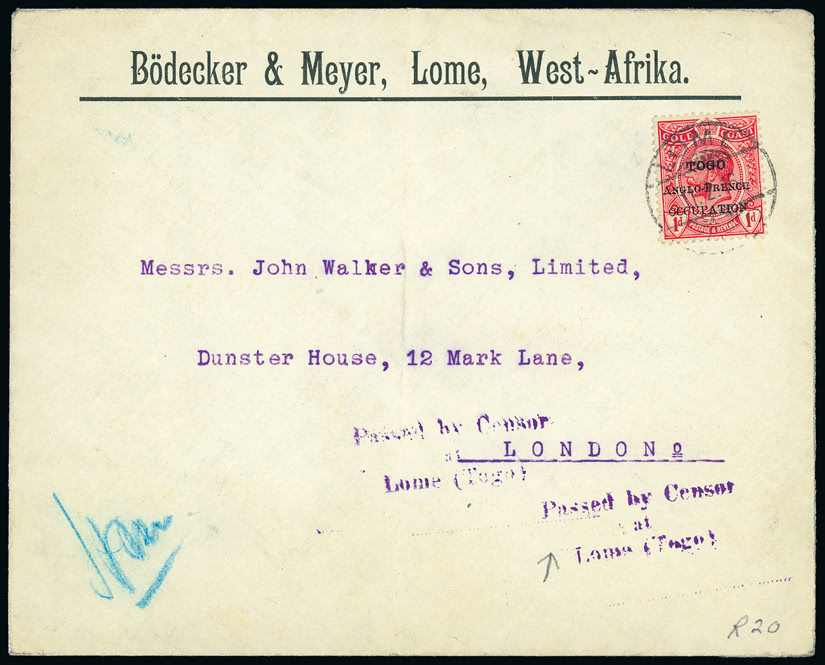 Bödecker & Meyer, Lome, West-Afrika.
GOLD COAST
TOGO
ANGLO-FRENCH
OCCUPATION
1d 1d
POSTAGE & REVENUE
LOME
Messrs. John Walker & Sons, Limited,
Dunster House, 12 Mark Lane,
LONDONo
Passed by Censor
at
Lome (Togo)
Passed by Censor
at
Lome (Togo)
R20